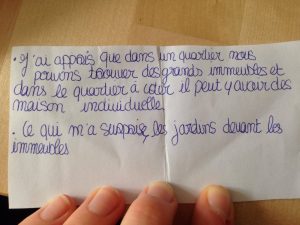 • J'ai appris que dans un quartier nous
pouvons trouver des grands immeubles et
dans le quartier à côté il peut y avoir des
maison individuelle
• Ce qui m'a surprise, les jardins devant les
immeubles